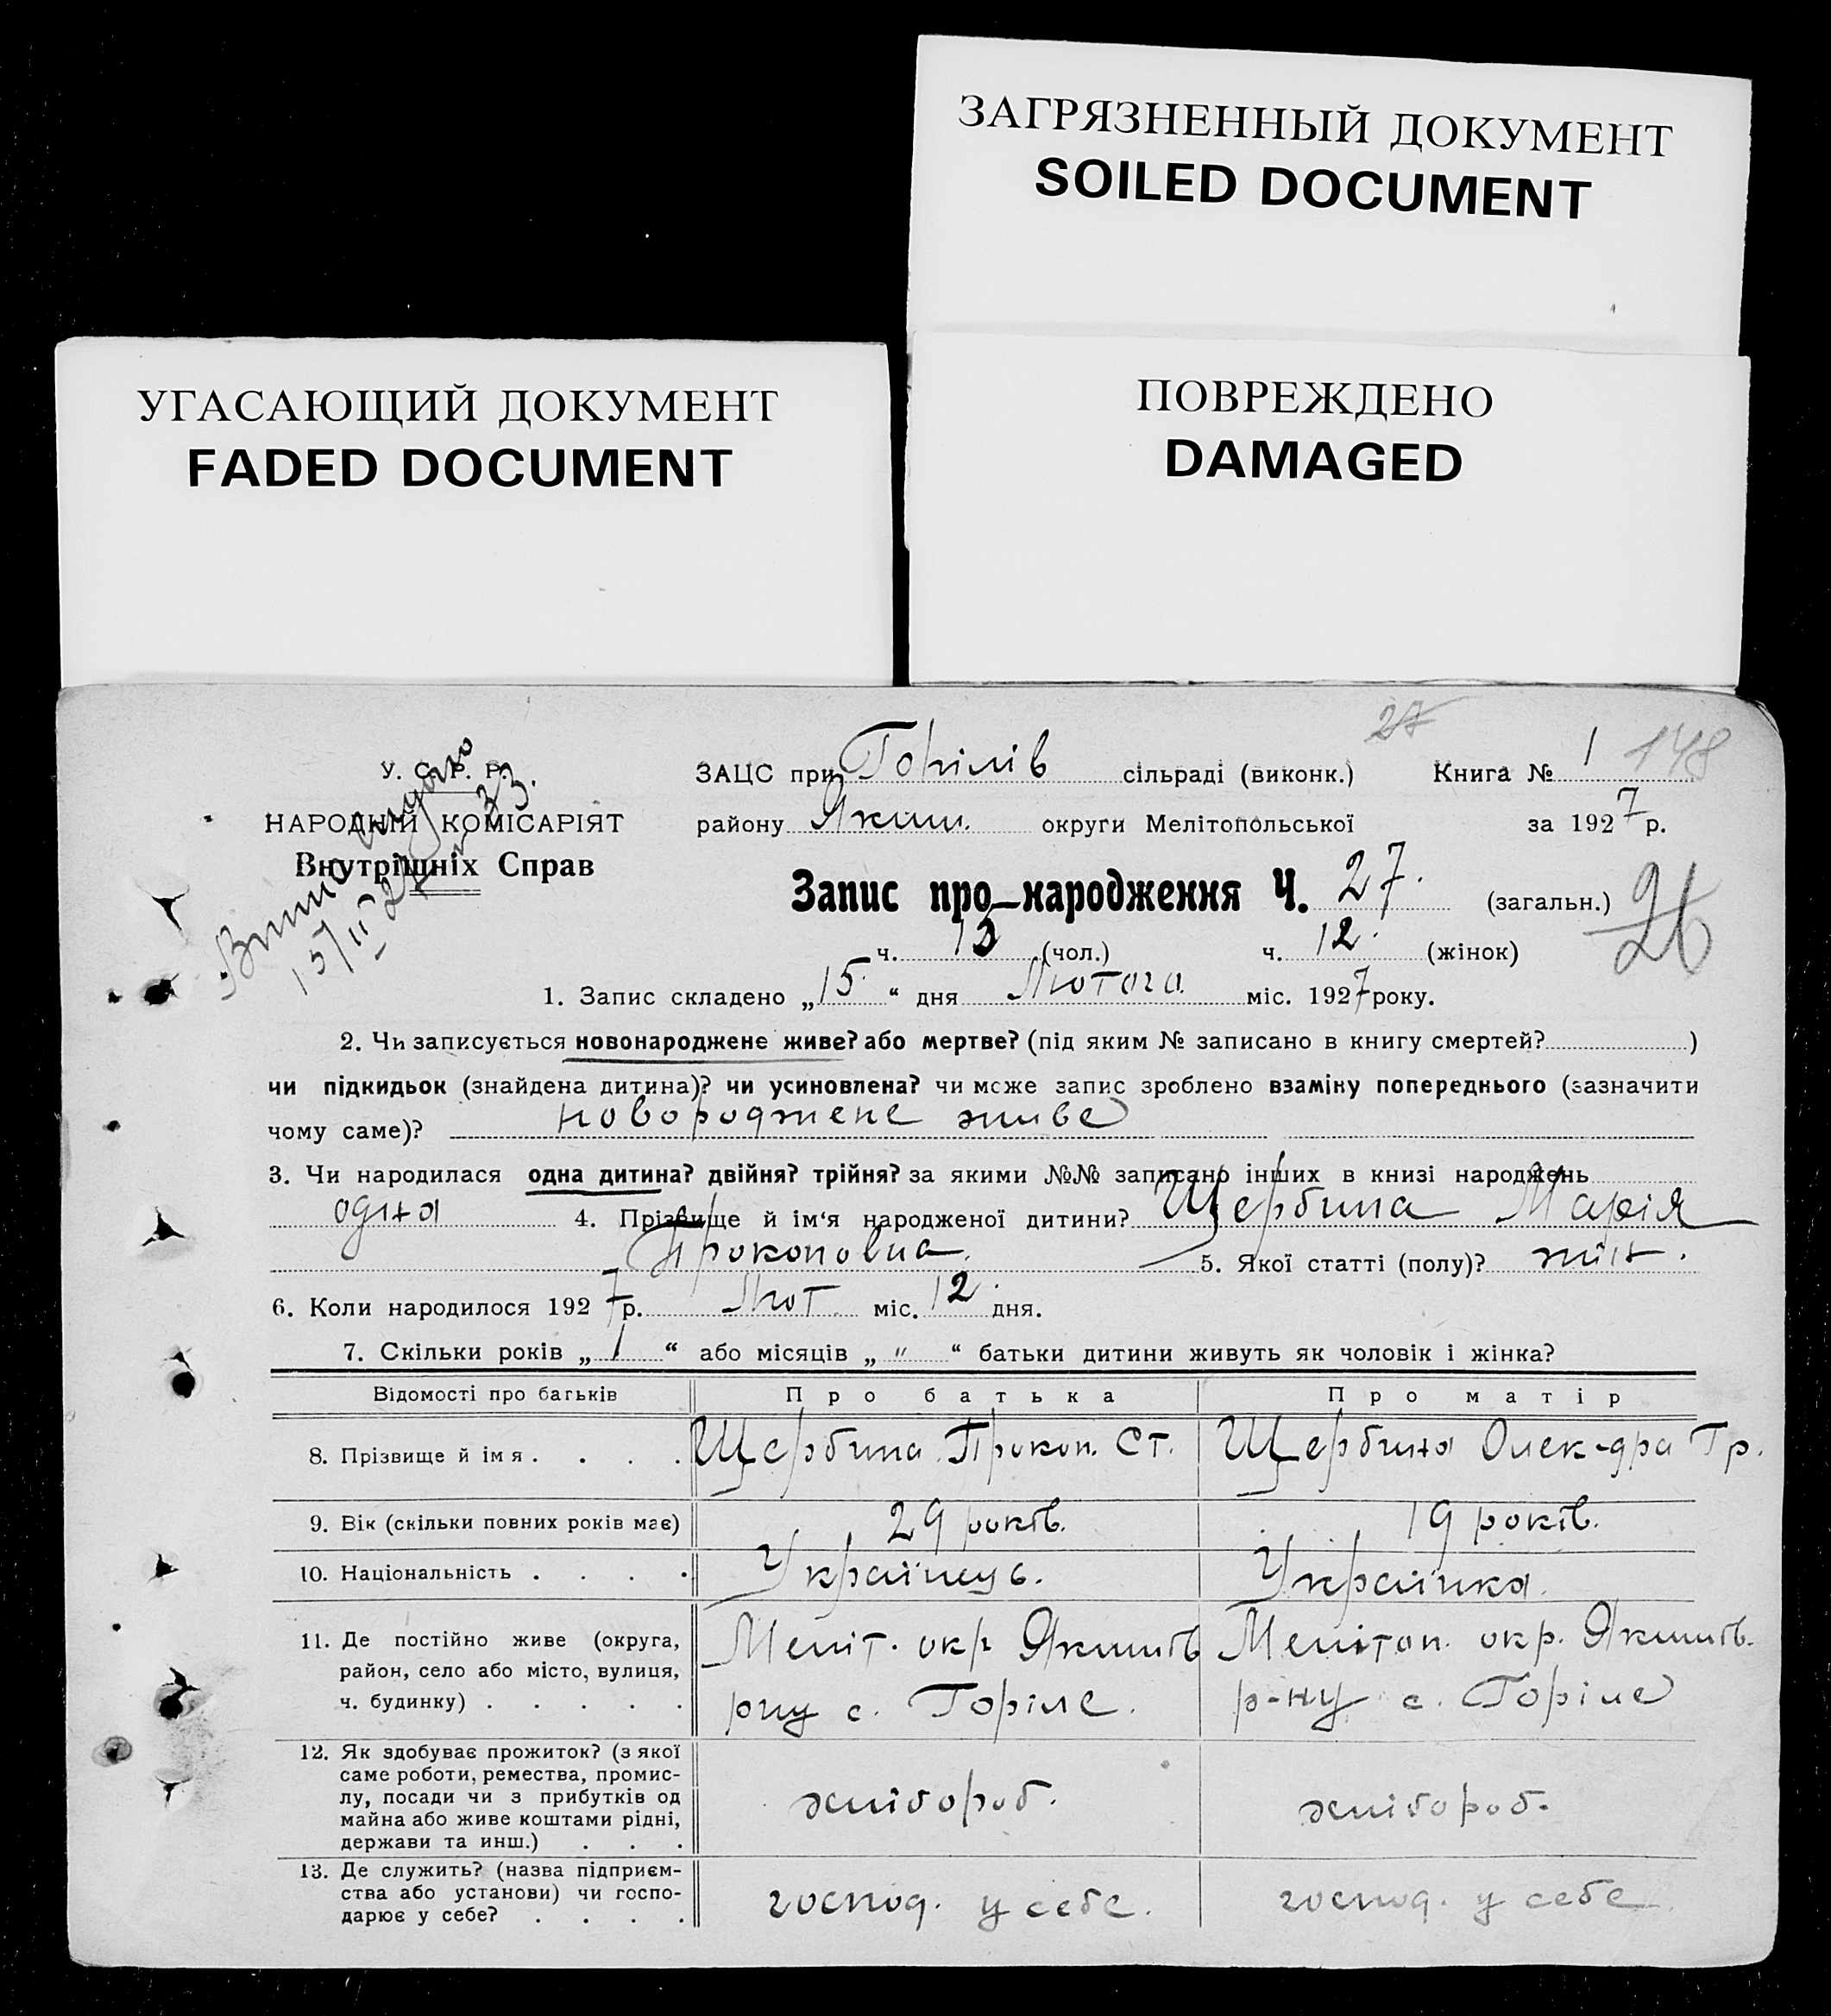 ЗАГРЯЗНЕННЫЙ ДОКУМЕНТ
SOILED DOCUMENT
УГАСАЮЩИЙ ДОКУМЕНТ
FADED DOCUMENT
ПОВРЕЖДЕНО
DAMAGED
27
У. С. Р. Р.
НАРОДНІЙ КОМІСАРІЯТ
Внутрішніх Справ
ЗАЦС при Горілів сільраді (виконк.) Книга № 1 148
району Яким. округи Мелітопольської за 1927 р.
Запис про народження Ч. 27. (загальн.) 26
ч. 15 (чол.) ч. 12. (жінок)
1. Запис складено „15.“ дня Лютого міс. 1927 року.
2. Чи записується новонароджене живе? або мертве? (під яким № записано в книгу смертей? )
чи підкидьок (знайдена дитина)? чи усиновлена? чи може запис зроблено взаміну попереднього (зазначити
чому саме)? новороджене живе
3. Чи народилася одна дитина? двійня? трійня? за якими №№ записано інших в книзі народжень
одна 4. Прізвище й ім‘я народженої дитини? Щербина Марія
Прокоповна. 5. Якої статті (полу)? жін.
6. Коли народилося 1927 р. Лют. міс. 12 дня.
7. Скільки років „ 1 “ або місяців „ " “ батьки дитини живуть як чоловік і жінка?
Відомості про батьків Про батька Про матір
8. Прізвище й імя . . . . Щербина Прокоп. Ст. Щербина Олек-дра Гр.
9. Вік (скільки повних років має) 29 років. 19 років.
10. Національність . . . . Українець. Українка.
11. Де постійно живе (округа,
район, село або місто, вулиця,
ч. будинку) . . . . .
Меліт. окр Якимів
рну с. Горіле.
Мелітоп. окр. Якимів.
р-ну с. Горіле
12. Як здобуває прожиток? (з якої
саме роботи, ремества, промис-
лу, посади чи з прибутків од
майна або живе коштами рідні,
держави та инш.) . . .
хлібороб.
хлібороб.
13. Де служить? (назва підприєм-
ства або установи) чи госпо-
дарює у себе? . . . .
господ. у себе.
господ. у себе.